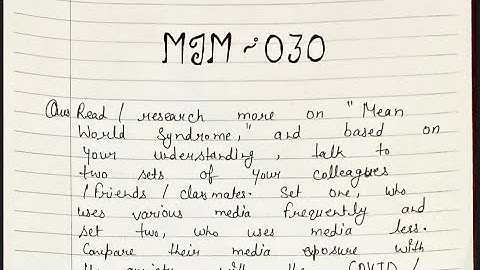 MJM ~ 030
Ques Read / research more on "Mean
World Syndrome," and based on
your understanding, talk to
two sets of your colleagues
/ friends / classmates. Set one, who
uses various media frequently and
set two, who uses media less.
Compare their media exposure with
the anxiety with the COVID /